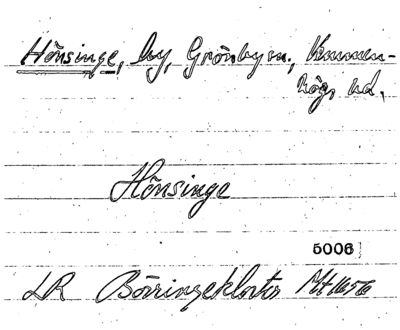 Hönsinge, by, Grönby sn., Vemmen-
högs hd.
Hönsinge
5006
LR Börringekloster Mt 1656